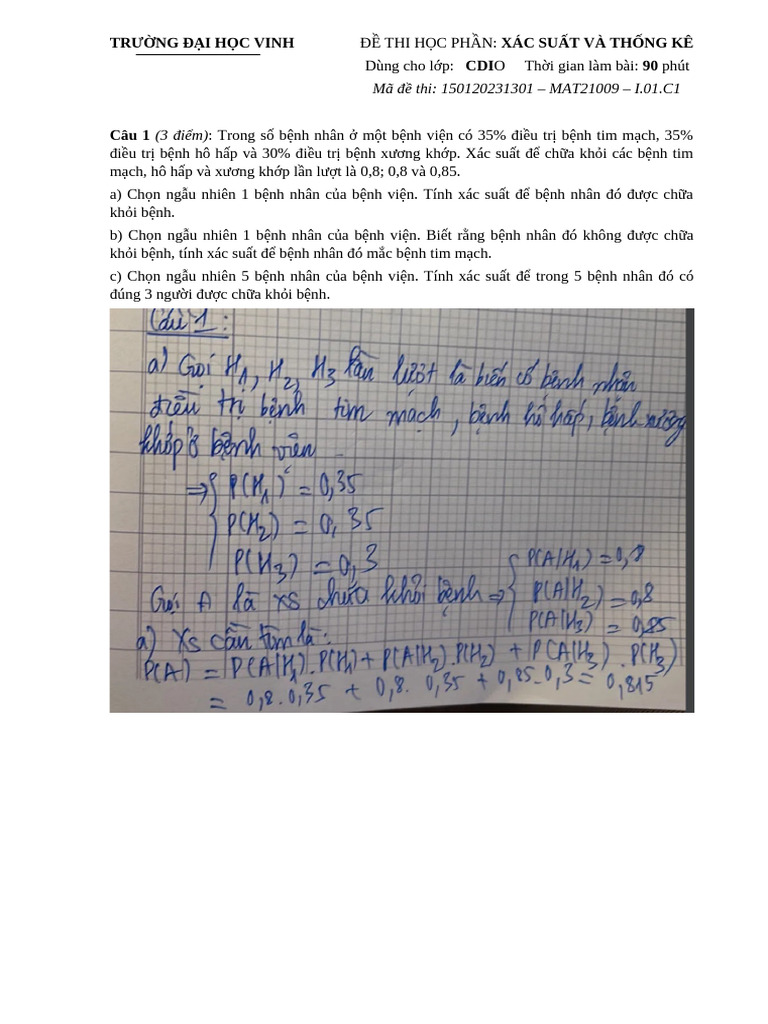 TRƯỜNG ĐẠI HỌC VINH
ĐỀ THI HỌC PHẦN: XÁC SUẤT VÀ THỐNG KÊ
Dùng cho lớp: CDIO Thời gian làm bài: 90 phút
Mã đề thi: 150120231301 – MAT21009 – I.01.C1
Câu 1 (3 điểm): Trong số bệnh nhân ở một bệnh viện có 35% điều trị bệnh tim mạch, 35%
điều trị bệnh hô hấp và 30% điều trị bệnh xương khớp. Xác suất để chữa khỏi các bệnh tim
mạch, hô hấp và xương khớp lần lượt là 0,8; 0,8 và 0,85.
a) Chọn ngẫu nhiên 1 bệnh nhân của bệnh viện. Tính xác suất để bệnh nhân đó được chữa
khỏi bệnh.
b) Chọn ngẫu nhiên 1 bệnh nhân của bệnh viện. Biết rằng bệnh nhân đó không được chữa
khỏi bệnh, tính xác suất để bệnh nhân đó mắc bệnh tim mạch.
c) Chọn ngẫu nhiên 5 bệnh nhân của bệnh viện. Tính xác suất để trong 5 bệnh nhân đó có
đúng 3 người được chữa khỏi bệnh.
Câu 1 :
a) Gọi H₁, H₂, H₃ lần lượt là biến cố bệnh nhân
điều trị bệnh tim mạch, bệnh hô hấp, bệnh xương
khớp ở bệnh viện
⇒ { P(H₁) = 0,35
P(H₂) = 0,35
P(H₃) = 0,3
Gọi A là XS chữa khỏi bệnh ⇒ { P(A|H₁) = 0,8
P(A|H₂) = 0,8
P(A|H₃) = 0,85
a) XS cần tìm là:
P(A) = P(A|H₁).P(H₁) + P(A|H₂).P(H₂) + P(A|H₃).P(H₃)
= 0,8.0,35 + 0,8.0,35 + 0,85.0,3 = 0,815